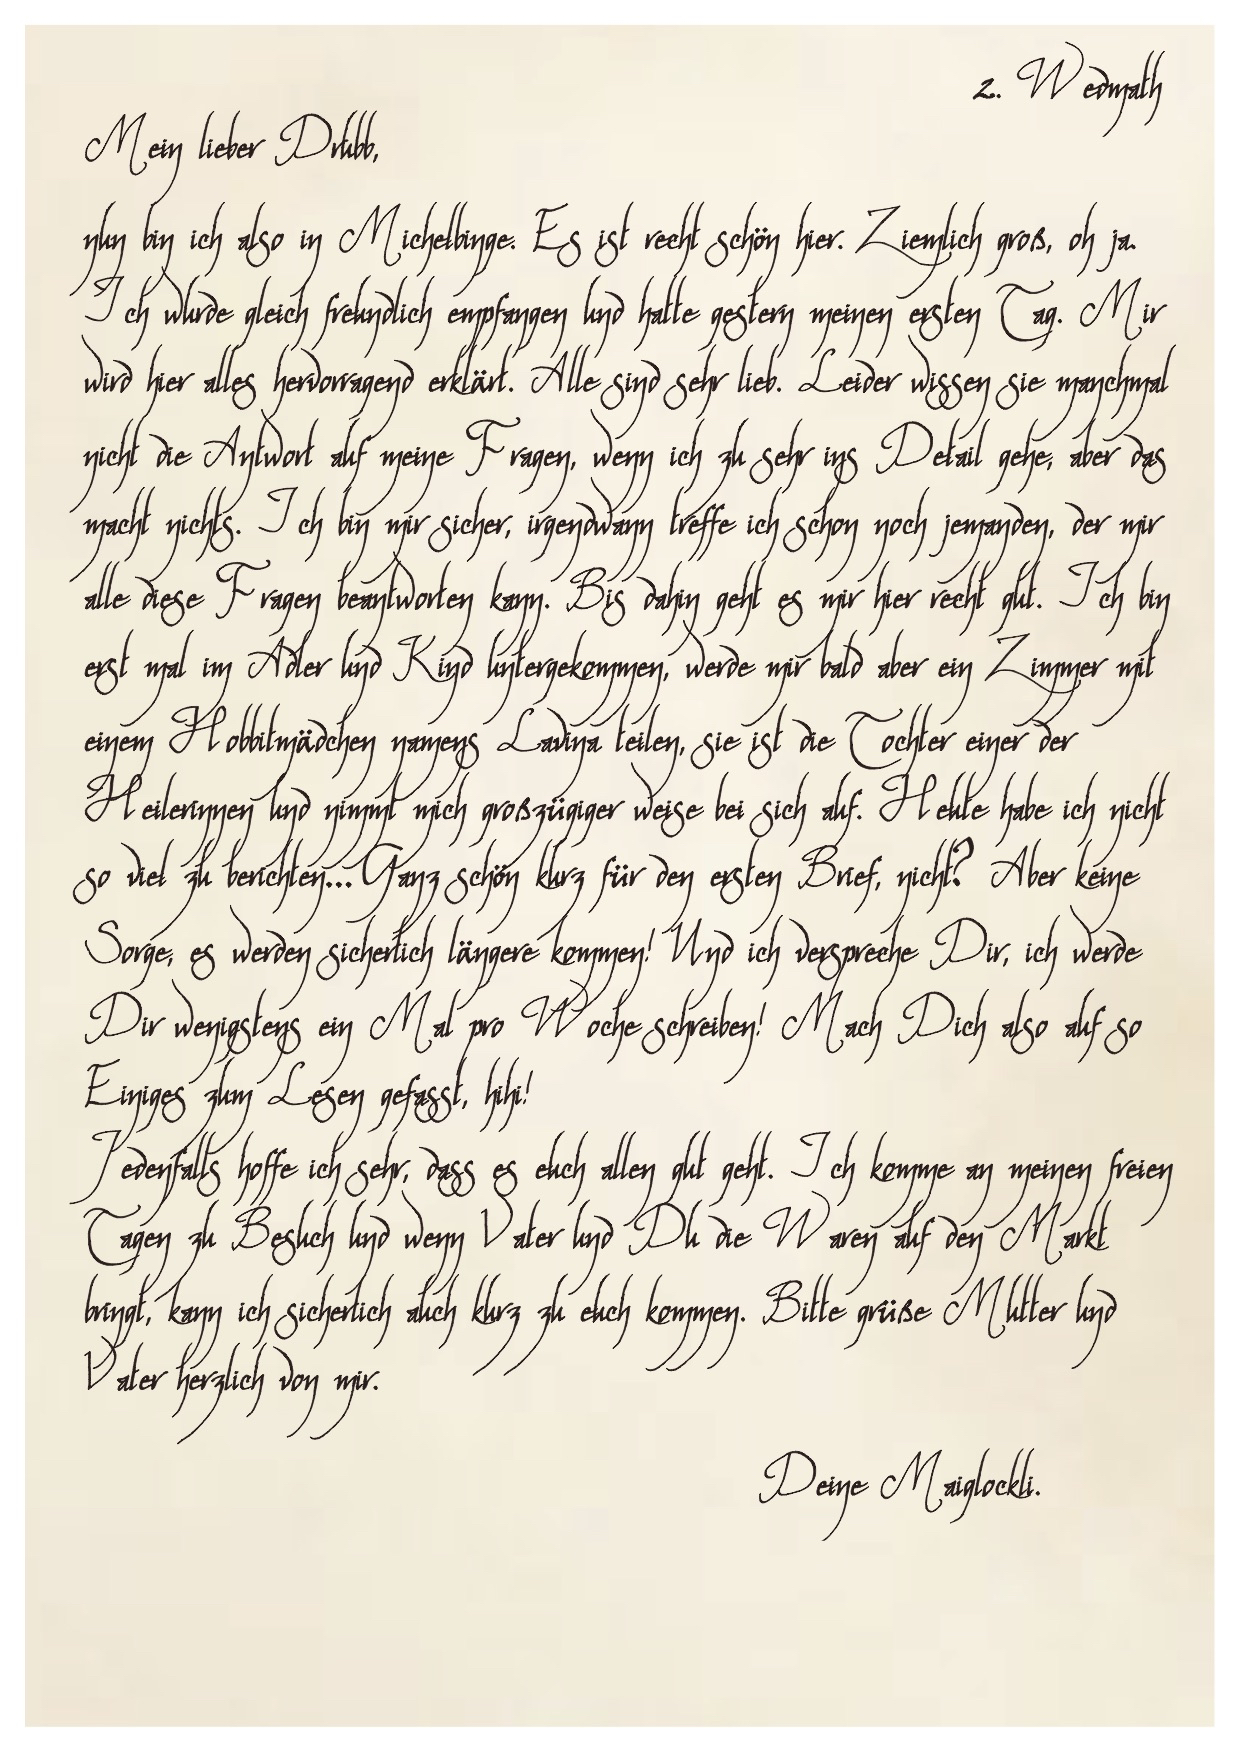 2. Wedmath
Mein lieber Drubb,
nun bin ich also in Michelbinge. Es ist recht schön hier. Ziemlich groß, oh ja.
Ich wurde gleich freundlich empfangen und hatte gestern meinen ersten Tag. Mir
wird hier alles hervorragend erklärt. Alle sind sehr lieb. Leider wissen sie manchmal
nicht die Antwort auf meine Fragen, wenn ich zu sehr ins Detail gehe, aber das
macht nichts. Ich bin mir sicher, irgendwann treffe ich schon noch jemanden, der mir
alle diese Fragen beantworten kann. Bis dahin geht es mir hier recht gut. Ich bin
erst mal im Adler und Kind untergekommen, werde mir bald aber ein Zimmer mit
einem Hobbitmädchen namens Lavina teilen, sie ist die Tochter einer der
Heilerinnen und nimmt mich großzügiger weise bei sich auf. Heute habe ich nicht
so viel zu berichten... Ganz schön kurz für den ersten Brief, nicht? Aber keine
Sorge, es werden sicherlich längere kommen! Und ich verspreche Dir, ich werde
Dir wenigstens ein Mal pro Woche schreiben! Mach Dich also auf so
Einiges zum Lesen gefasst, hihi!
Jedenfalls hoffe ich sehr, dass es euch allen gut geht. Ich komme an meinen freien
Tagen zu Besuch und wenn Vater und Du die Waren auf den Markt
bringt, kann ich sicherlich auch kurz zu euch kommen. Bitte grüße Mutter und
Vater herzlich von mir.
Deine Maiglockli.